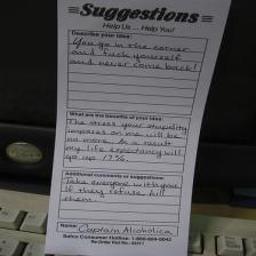 Suggestions
Help Us ... Help You!
Describe your idea:
You go in the corner
and fuck yourself
and never come back!
What are the benefits of your idea:
The stress your stupidity
imposes on me will be
no more. As a result
my life expectancy will
go up 17%.
Additional comments or suggestions:
Take everyone with you
if they refuse kill
them.
Name: Captain Alcoholica
Consumer Hotline: